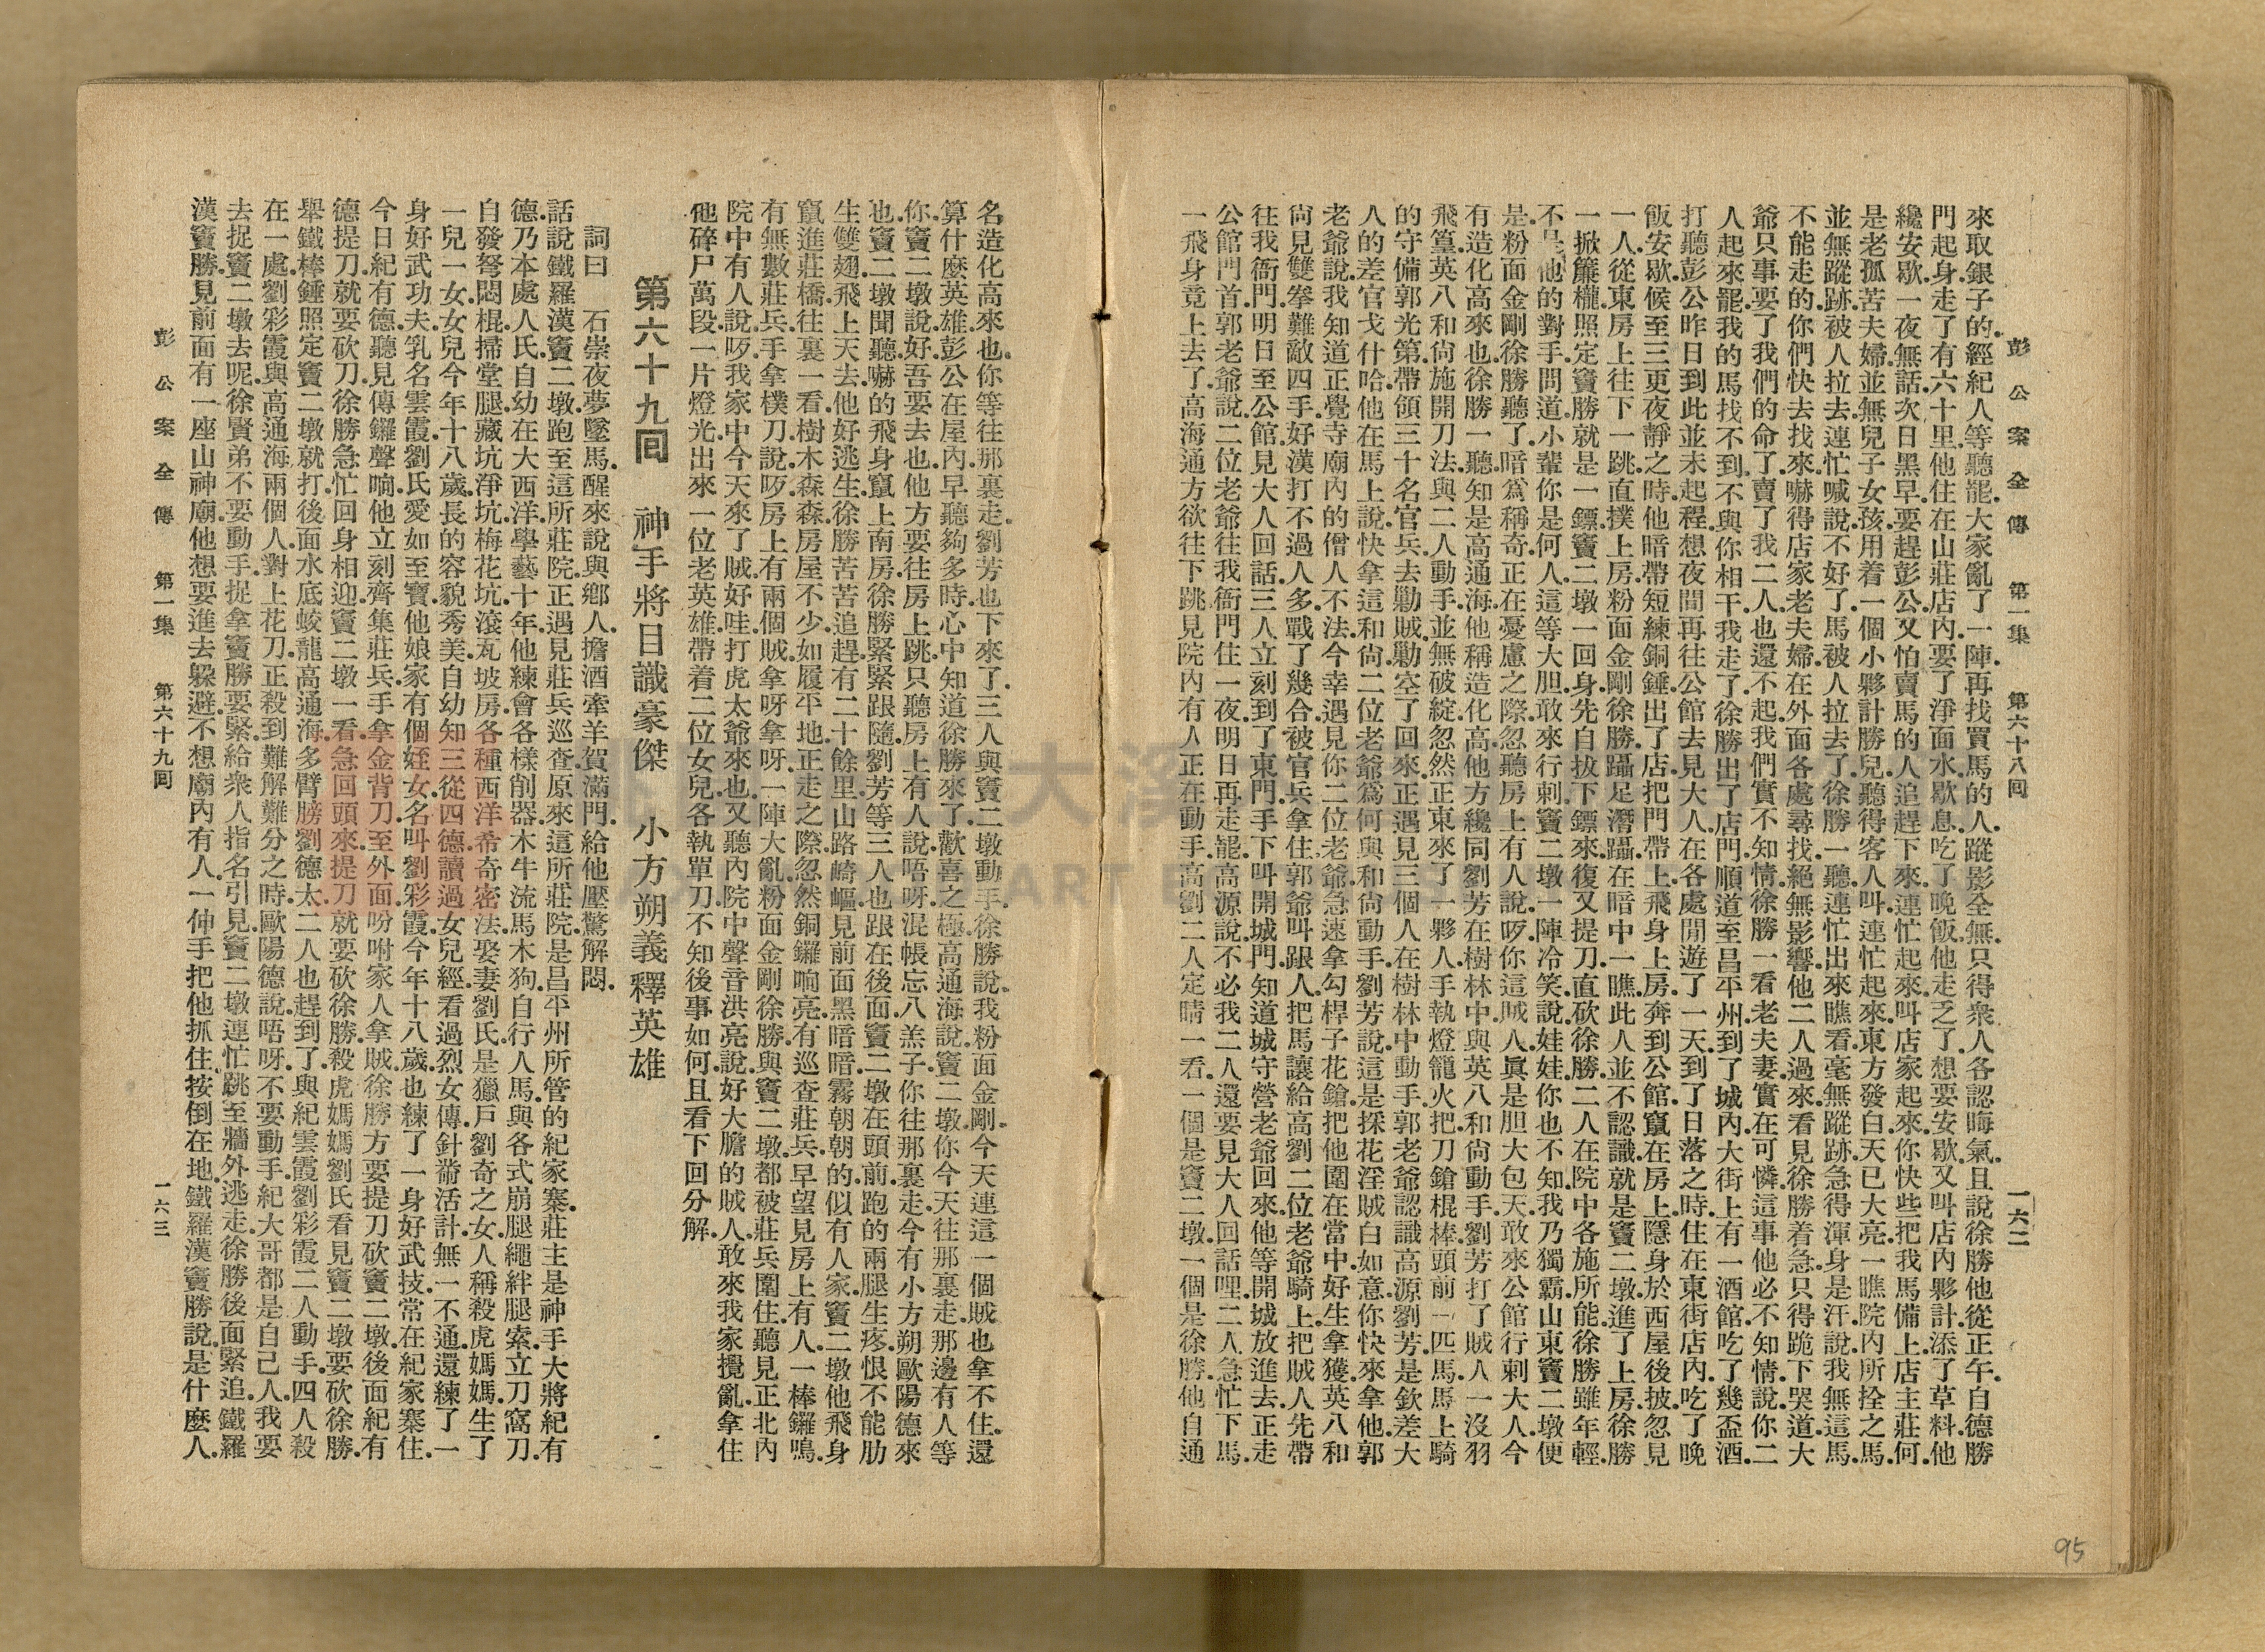 彭公案全傳 第一集 第六十八回 一六二
來取銀子的.經紀人等聽罷.大家亂了一陣.再找買馬的人.蹤影全無.只得衆人各認晦氣.且說徐勝他從正午.自德勝
門起身.走了有六十里.他住在山莊店內.要了淨面水.歇息.吃了晚飯.他走乏了.想要安歇.又叫店內夥計.添了草料.他
纔安歇.一夜無話.次日黑早.要趕彭公.又怕賣馬的人追趕下來.連忙起來.叫店家起來.你快些把我馬備上.店主莊何.
是老孤苦夫婦.並無兒子女孩.用着一個小夥計勝兒.聽得客人叫.連忙起來.東方發白.天已大亮.一瞧院內所拴之馬.
並無蹤跡.被人拉去.連忙喊說.不好了.馬被人拉去了.徐勝一聽.連忙出來.瞧看.毫無蹤跡.急得渾身是汗.說我無這馬.
不能走的.你們快去找來.嚇得店家老夫婦.在外面各處尋找.絕無影響.他二人過來.看見徐勝着急.只得跪下哭道.大
爺.只事要了我們的命了.賣了我二人也還不起.我們實不知情.徐勝一看.老夫妻實在可憐.這事他必不知情.說你二
人起來罷.我的馬找不到.不與你相干.我走了.徐勝出了店門.順道至昌平州.到了城內大街上.有一酒館.吃了幾盃酒.
打聽彭公昨日到此.並未起程.想夜間再往公館去見大人.在各處閒遊了一天.到了日落之時.住在東街店內.吃了晚
飯安歇.候至三更夜靜之時.他暗帶短練銅錘.出了店.把門帶上.飛身上房.奔到公館.竄在房上.隱身於西屋後披.忽見
一人從東房上往下一跳.直撲上房.粉面金剛徐勝.躡足潛蹤.在暗中一瞧.此人並不認識.就是竇二墩.進了上房.徐勝
一掀簾櫳.照定竇勝就是一鏢.竇二墩一回身.先自拔下鏢來.復又提刀.直砍徐勝.二人在院中各施所能.徐勝雖年輕.
不是他的對手.問道.小輩你是何人.這等大胆.敢來行刺.竇二墩一陣冷笑.說.娃娃.你也不知.我乃獨霸山東竇二墩便
是.粉面金剛徐勝聽了.暗爲稱奇.正在憂慮之際.忽聽房上有人說.哎.你這賊人.眞是胆大包天.敢來公館行刺大人.今
有造化高來也.徐勝一聽.知是高通海.他稱造化高.他方纔同劉芳在樹林中.與英八和尙動手.劉芳打了賊人一沒羽
飛篁.英八和尙施開刀法.與二人動手.並無破綻.忽然正東來了一夥人.手執燈籠火把.刀鎗棍棒.頭前一匹馬.馬上騎
的守備郭光第.帶領三十名官兵.去勦賊.勦空了.回來.正遇見三個人在樹林中動手.郭老爺認識高源劉芳.是欽差大
人的差官戈什哈.他在馬上說.快拿這和尙.二位老爺爲何與和尙動手.劉芳說.這是採花淫賊白如意.你快來拿他.郭
老爺說.我知道正覺寺廟內的僧人不法.今幸遇見你二位老爺.急速拿勾桿子花鎗把他圍在當中.好生拿獲.英八和
尙見雙拳難敵四手.好漢打不過人多.戰了幾合.被官兵拿住.郭爺叫跟人把馬讓給高劉二位老爺騎上.把賊人先帶
往我衙門.明日至公館見大人回話.三人立刻到了東門.手下叫開城門.知道城守營老爺回來.他等開城放進去.正走
公館門首.郭老爺說.二位老爺往我衙門住一夜.明日再走罷.高源說.不必.我二人還要見大人回話哩.二人急忙下馬.
一飛身竟上去了.高海通方欲往下跳.見院內有人正在動手.高劉二人定睛一看.一個是竇二墩.一個是徐勝.他自通
名造化高來也.你等往那裏走.劉芳也下來了.三人與竇二墩動手.徐勝說.我粉面金剛今天連這一個賊也拿不住.還
算什麼英雄.彭公在屋內早聽夠多時.心中知道徐勝來了.歡喜之極.高通海說.竇二墩.你今天往那裏走.那邊有人等
你.竇二墩說.好.吾要去也.他方要往房上跳.只聽房上有人說.唔呀.混帳忘八羔子.你往那裏走.今有小方朔歐陽德來
也.竇二墩聞聽.嚇的飛身竄上南房.徐勝緊緊跟隨.劉芳等三人也跟在後面.竇二墩在頭前.跑的兩腿生疼.恨不能肋
生雙翅.飛上天去.他好逃生.徐勝苦苦追趕.有二十餘里.山路崎嶇.見前面黑暗暗.霧朝朝的.似有人家.竇二墩他飛身
竄進莊橋.往裏一看.樹木森森.房屋不少.如履平地.正走之際.忽然銅鑼响亮.有巡查莊兵.早望見房上有人.一棒鑼鳴.
有無數莊兵.手拿樸刀.說.哎.房上有兩個賊.拿呀拿呀.一陣大亂.粉面金剛徐勝.與竇二墩.都被莊兵圍住.聽見正北內
院中有人說.哎.我家中今天來了賊.好哇.打虎太爺來也.又聽內院中聲音洪亮.說.好大膽的賊人.敢來我家攪亂.拿住
他碎尸萬段.一片燈光.出來一位老英雄.帶着二位女兒.各執單刀.不知後事如何.且看下回分解.
第六十九回 神手將目識豪傑 小方朔義釋英雄
詞曰 石崇夜夢墜馬.醒來說與鄕人.擔酒牽羊賀滿門.給他壓驚解悶.
話說鐵羅漢竇二墩.跑至這所莊院.正遇見莊兵巡查.原來這所莊院.是昌平州所管的紀家寨.莊主是神手大將紀有
德.乃本處人氏.自幼在大西洋學藝十年.他練會各樣削器.木牛流馬木狗.自行人馬.與各式崩腿繩絆腿索.立刀窩刀.
自發弩.悶棍.掃堂腿.藏坑淨坑.梅花坑.滾瓦坡房.各種西洋希奇密法.娶妻劉氏.是獵戶劉奇之女.人稱殺虎媽媽.生了
一兒一女.女兒今年十八歲.長的容貌秀美.自幼知三從四德.讀過女兒經.看過烈女傳.針黹活計.無一不通.還練了一
身好武功夫.乳名雲霞.劉氏愛如至寶.他娘家有個姪女.名叫劉彩霞.今年十八歲.也練了一身好武技.常在紀家寨住.
今日紀有德聽見傳鑼聲响.他立刻齊集莊兵.手拿金背刀.至外面.吩咐家人拿賊.徐勝方要提刀砍竇二墩.後面紀有
德提刀.就要砍刀.徐勝急忙回身相迎.竇二墩一看.急回頭來.提刀就要砍徐勝.殺虎媽媽劉氏.看見竇二墩要砍徐勝.
舉鐵棒錘.照定竇二墩就打.後面水底蛟龍高通海.多臂膀劉德太二人也趕到了.與紀雲霞劉彩霞二人動手.四人殺
在一處.劉彩霞與高通海兩個人.對上花刀.正殺到難解難分之時.歐陽德說.唔呀.不要動手.紀大哥.都是自己人.我要
去捉竇二墩去呢.徐賢弟不要動手.捉拿竇勝要緊.給衆人指名引見.竇二墩連忙跳至牆外逃走.徐勝後面緊追.鐵羅
漢竇勝.見前面有一座山神廟.他想要進去躲避.不想廟內有人.一伸手把他抓住.按倒在地.鐵羅漢竇勝說.是什麼人.
彭公案全傳 第一集 第六十九回 一六三
95